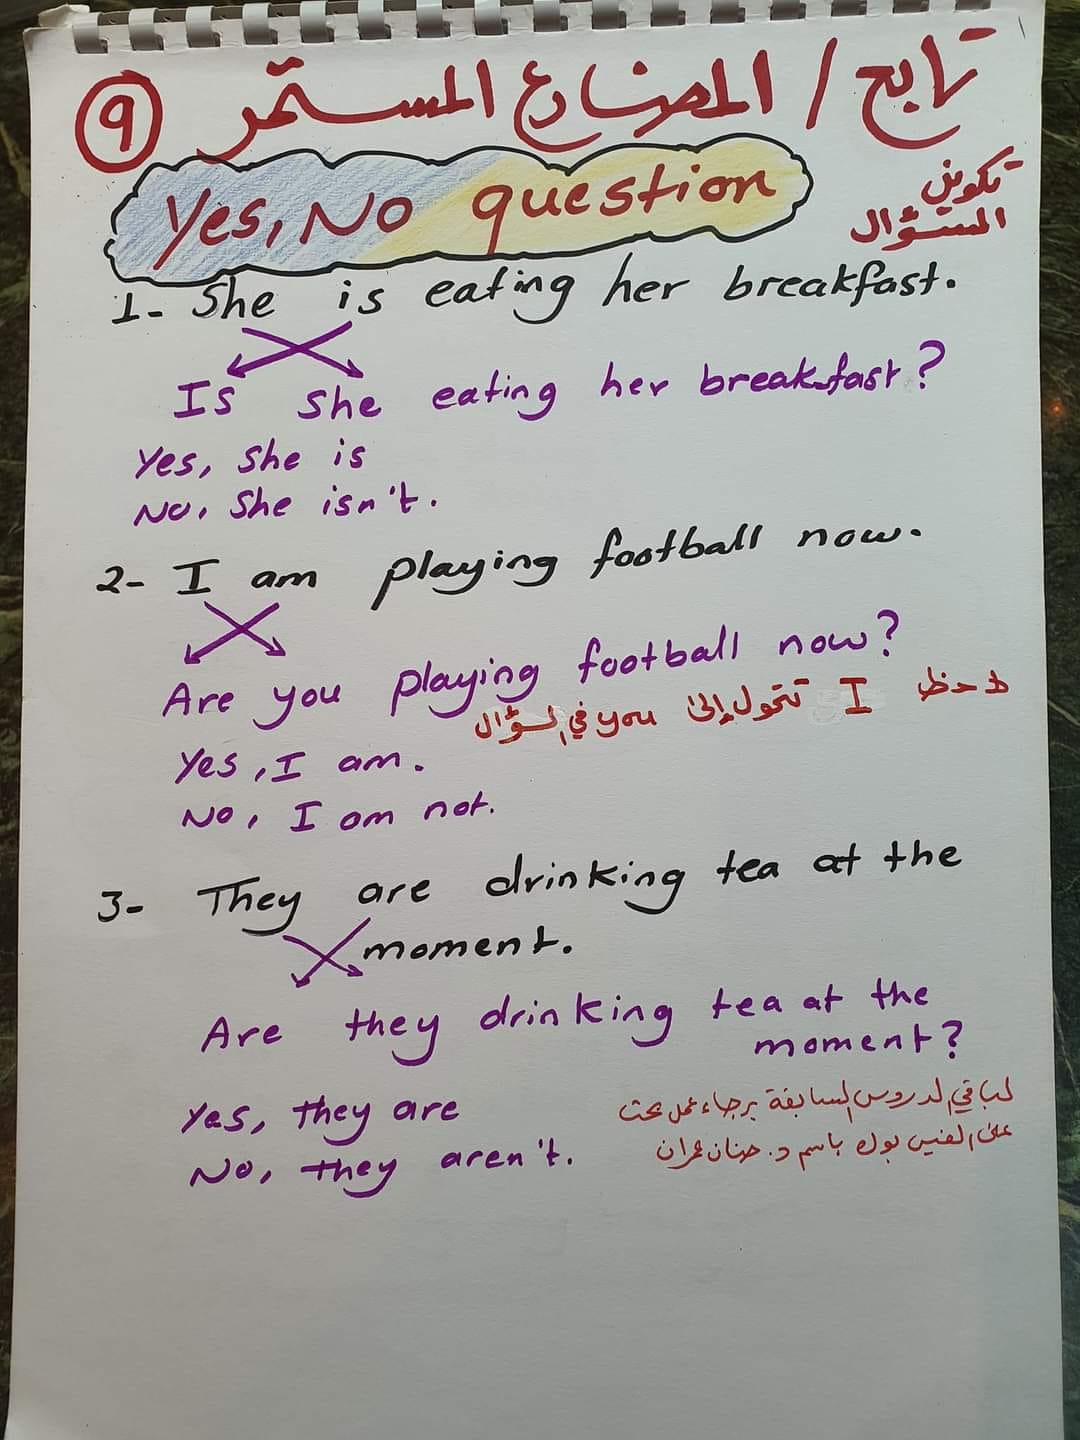 تابع / المضارع المستمر ٩
Yes, No question
تكوين
السؤال
1- She is eating her breakfast.
Is she eating her breakfast?
Yes, She is
No, She isn't.
2- I am playing football now.
Are you playing football now?
لاحظ I تتحول إلى you في السؤال
Yes, I am.
No, I am not.
3- They are drinking tea at the
moment.
Are they drinking tea at the
moment?
Yes, they are
No, they aren't.
لباقي الدروس السابقة برجاء عمل بحث
على الفيس بوك باسم د. حنان عمران